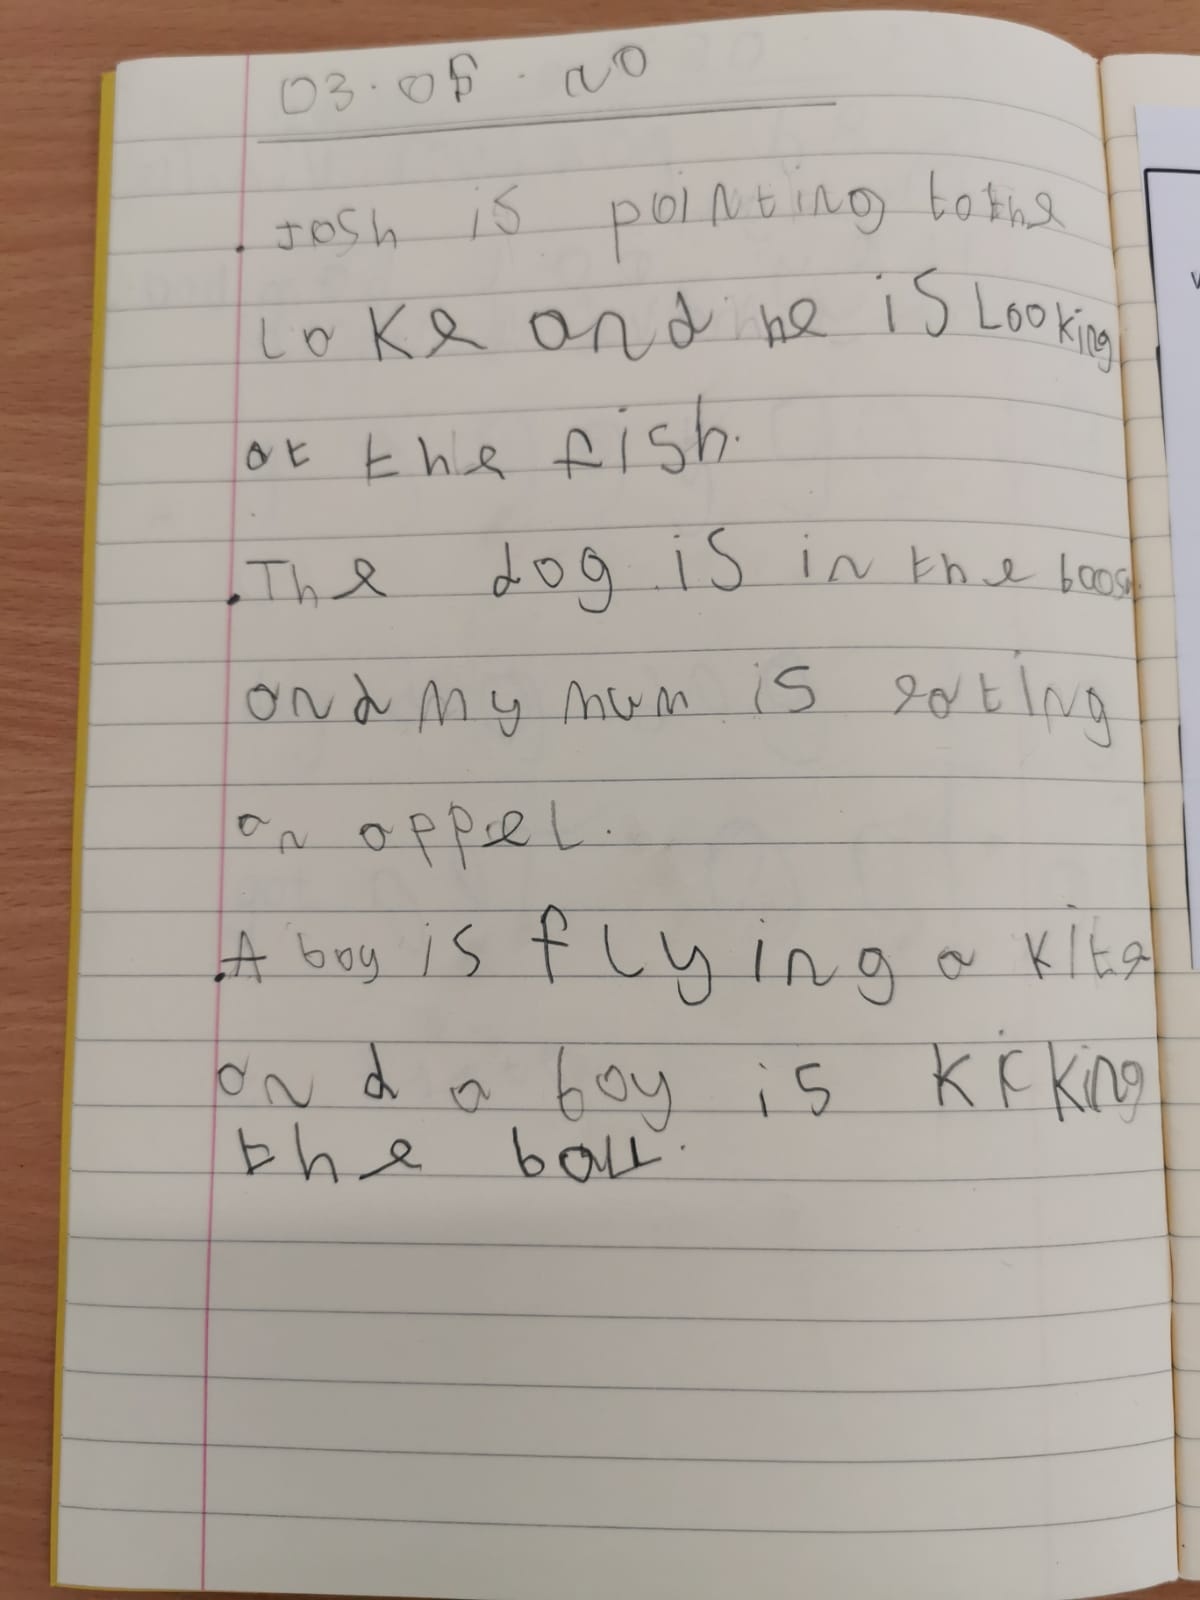 03.05.20
. Josh is pointing to the
Lake and he is Looking
at the fish.
. The dog is in the
and My mum is eating
an appel.
. A boy is flying a Kite
and a boy is Kicking
the ball.